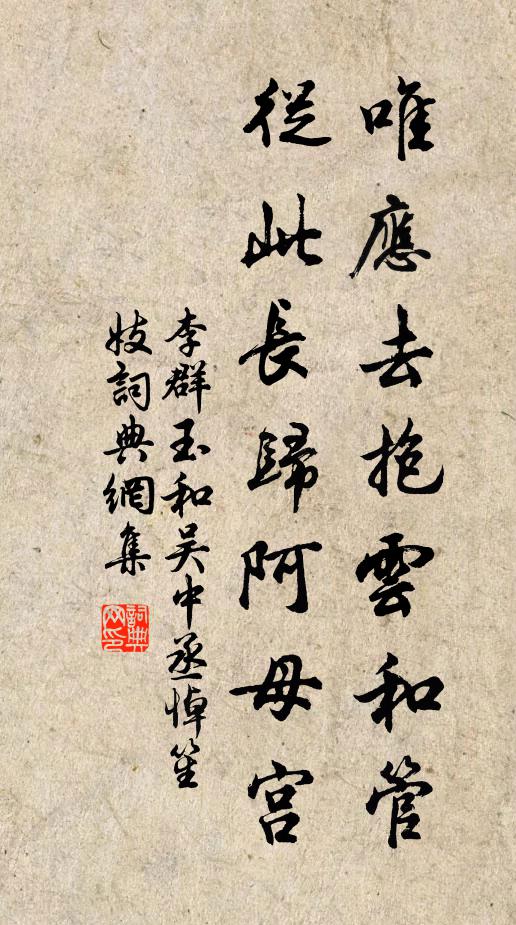 唯應去抱雲和管
從此長歸阿母宮
李群玉和吴中丞悼笙
妓詞典網集
詞典網印